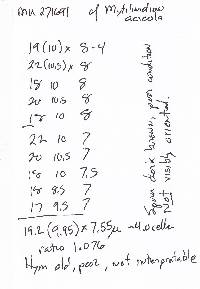 of Mytilinidion
19 (10) x 8-4
22 (10.5) x 8
18 10 8
20 10.5 8
18 10 8
22 10 7
20 10.5 7
18 10 7.5
18 8.5 7
17 9.5 7
19.2 (9.95) x 7.55µ
ratio 1.076
Hym old, poor, not interpretable
Spores dark brown, poor condition
Not visibly oriented.